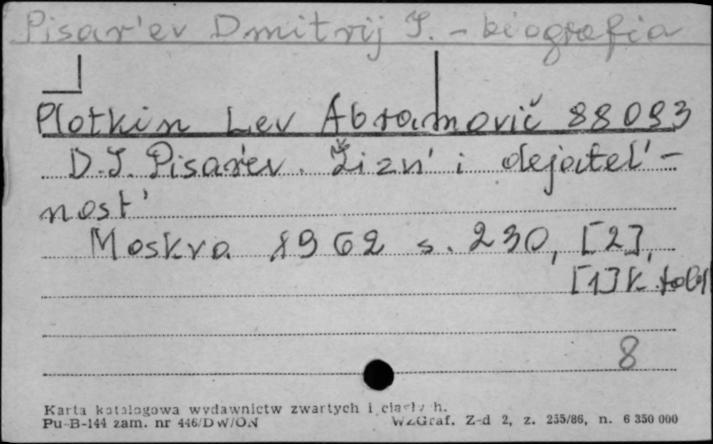 Pisar'ev Dmitrij I. - biografia
Plotkin Lev Abramovič 88093
D.I. Pisar'ev. Žizn' i dejatel'-
nost'
Moskva 1962 s. 230, [2],
[1] k. tabl
8
Karta katalogowa wydawnictw zwartych i ciągłych.
Pu-B-144 zam. nr 446/DW/ON WZGraf. Z-d 2, z. 255/86, n. 6 350 000